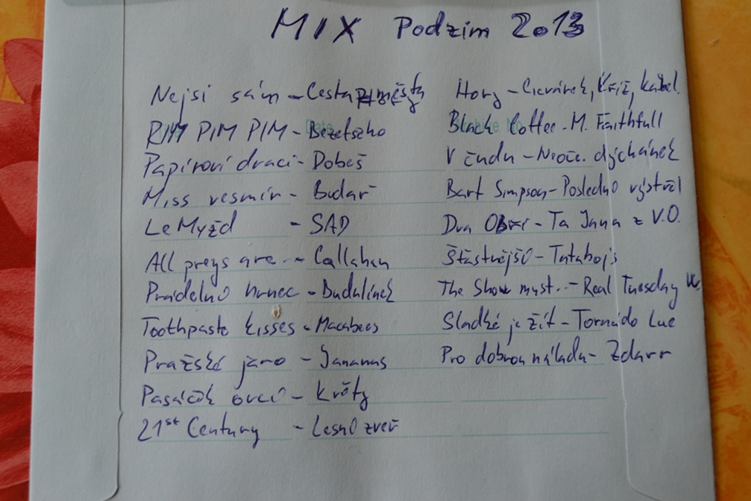 MIX Podzim 2013
Nejsi sám - Cesta městy
RIM PIM PIM - Bezefscho
Papíroví draci - Dobeš
Miss vesmír - Budař
Le Myžd - SAD
All preys are.. - Callahan
Prádelní hrnec - Budulínek
Toothpaste kisses - Macabees
Pražské jaro - Jananas
Pasáček ovcí - Květy
21st Century - Lesní zvěř
Hory - Kříž, Kabel.
Black Coffee - M. Faithfull
V čudu - Neoč. dýchánek
Bart Simpson - Poslední výstřel
Dva Obři - Ta Jana z V.O.
Šťastnější - Tatabojs
The Show must... - Real Tuesday W.
Sladké je žít - Tornádo Lue
Pro dobrou náladu - Zdarr